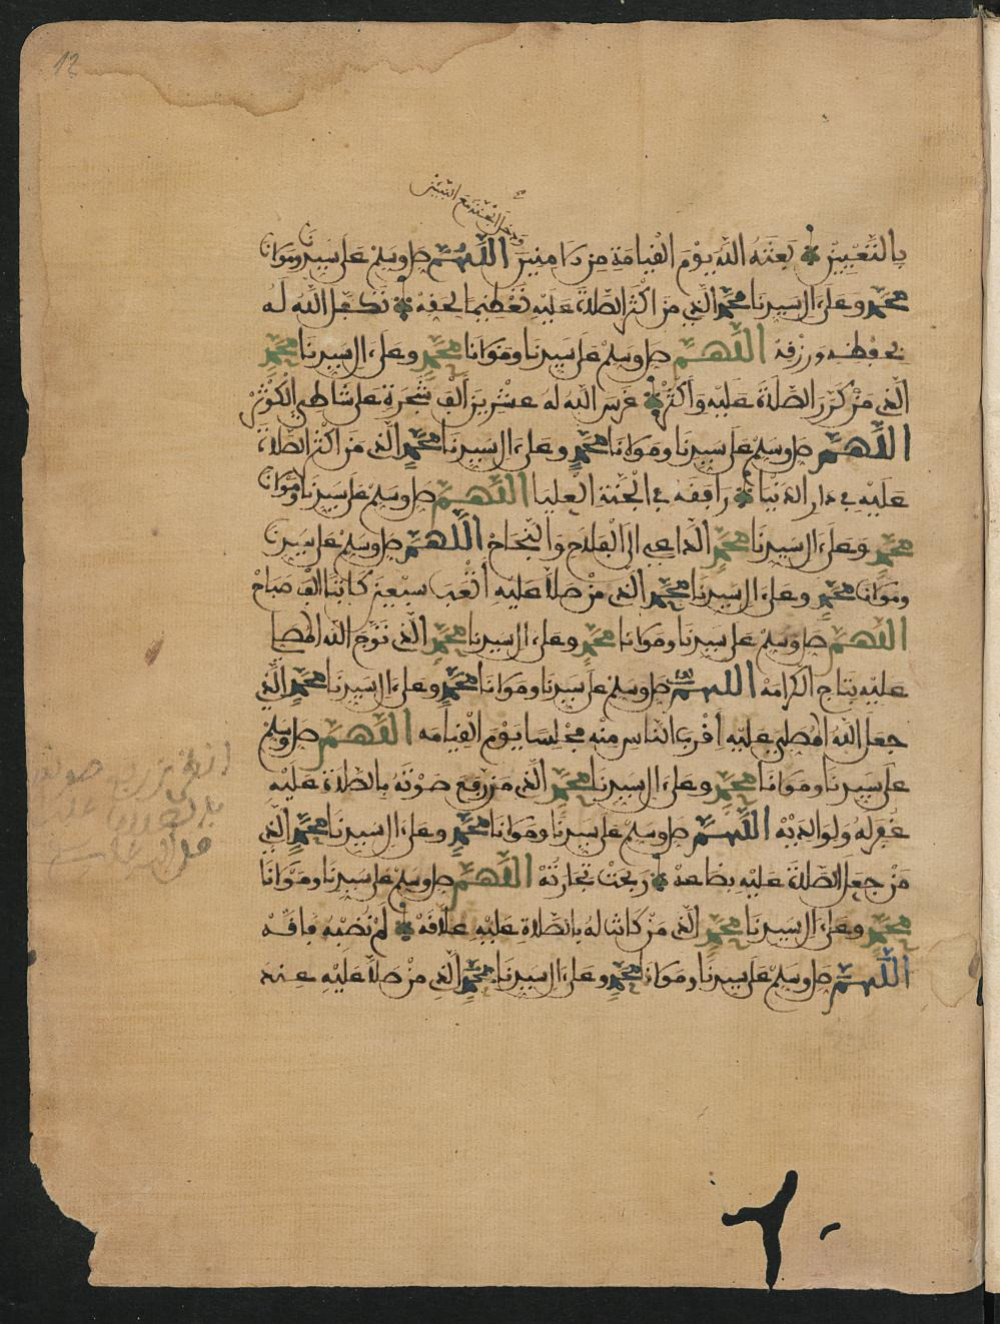 12
ودخل الجنة مع النبيين صح
بالتعيين بعثه الله يوم القيامة من الامنين اللهم صل وسلم على سيدنا ومولانا
محمد وعلى ءال سيدنا محمد الذي من اكثر الصلاة عليه تعظيما لحقه تكفل الله له
بحفظه ورزقه اللهم صل وسلم على سيدنا ومولانا محمد وعلى ءال سيدنا محمد
الذي من كرر الصلاة عليه وأكثر غرس الله له عشرين ألف شجرة على شاطئ الكوثر
اللهم صل وسلم على سيدنا ومولانا محمد وعلى ءال سيدنا محمد الذي من اكثر الصلاة
عليه في دار الدنيا رافقه في الجنة العليا اللهم صل وسلم على سيدنا ومولانا
محمد وعلى ءال سيدنا محمد الداعي إلى الفلاح والنجاح اللهم صل وسلم على سيدنا
ومولانا محمد وعلى ءال سيدنا محمد الذي من صلا عليه أتعب سبعين كاتبا الف صباح
اللهم صل وسلم على سيدنا ومولانا محمد وعلى ءال سيدنا محمد الذي توج الله المصلي
عليه بتاج الكرامه اللهم صل وسلم على سيدنا ومولانا محمد وعلى ءال سيدنا محمد الذي
جعل الله المصلي عليه أقرب الناس منه مجلسا يوم القيامه اللهم صل وسلم
على سيدنا ومولانا محمد وعلى ءال سيدنا محمد الذي من رفع صوته بالصلاة عليه
غفر له ولوالديه اللهم صل وسلم على سيدنا ومولانا محمد وعلى ءال سيدنا محمد الذي
من جعل الصلاة عليه بضاعة ربحت تجارته اللهم صل وسلم على سيدنا ومولانا
محمد وعلى ءال سيدنا محمد الذي من كانت له بالصلاة عليه علاقه لم تصبه فاقه
اللهم صل وسلم على سيدنا ومولانا محمد وعلى ءال سيدنا محمد الذي من صلا عليه عند